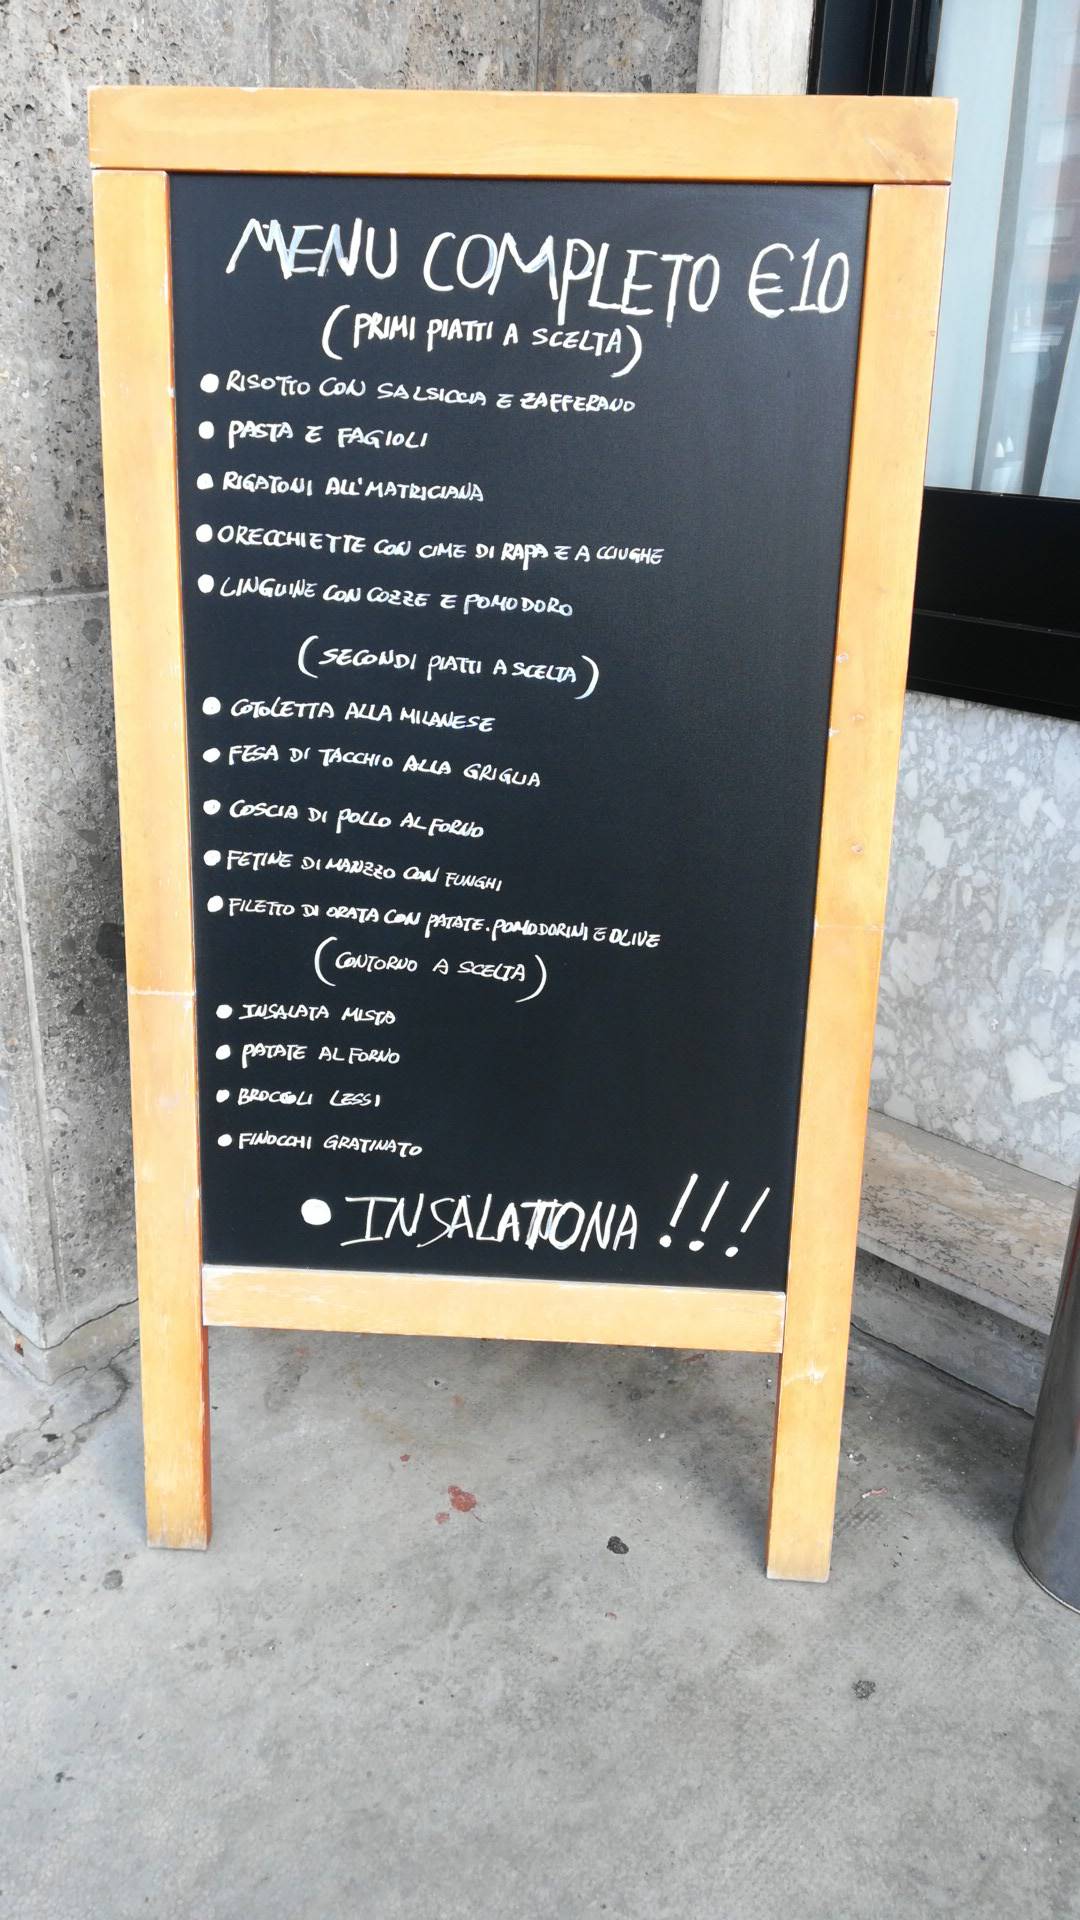 MENU COMPLETO €10
(PRIMI PIATTI A SCELTA)
• RISOTTO CON SALSICCIA E ZAFFERANO
• PASTA E FAGIOLI
• RIGATONI ALL'MATRICIANA
• ORECCHIETTE CON CIME DI RAPA E A CCIUGHE
• LINGUINE CON COZZE E POMODORO
(SECONDI PIATTI A SCELTA)
• COTOLETTA ALLA MILANESE
• FESA DI TACCHIO ALLA GRIGLIA
• COSCIA DI POLLO AL FORNO
• FETINE DI MANZZO CON FUNGHI
• FILETTO DI ORATA CON PATATE. POMODORINI E OLIVE
(CONTORNO A SCELTA)
• INSALATA MISTA
• PATATE AL FORNO
• BROCCOLI LESSI
• FINOCCHI GRATINATO
• INSALATTONA !!!